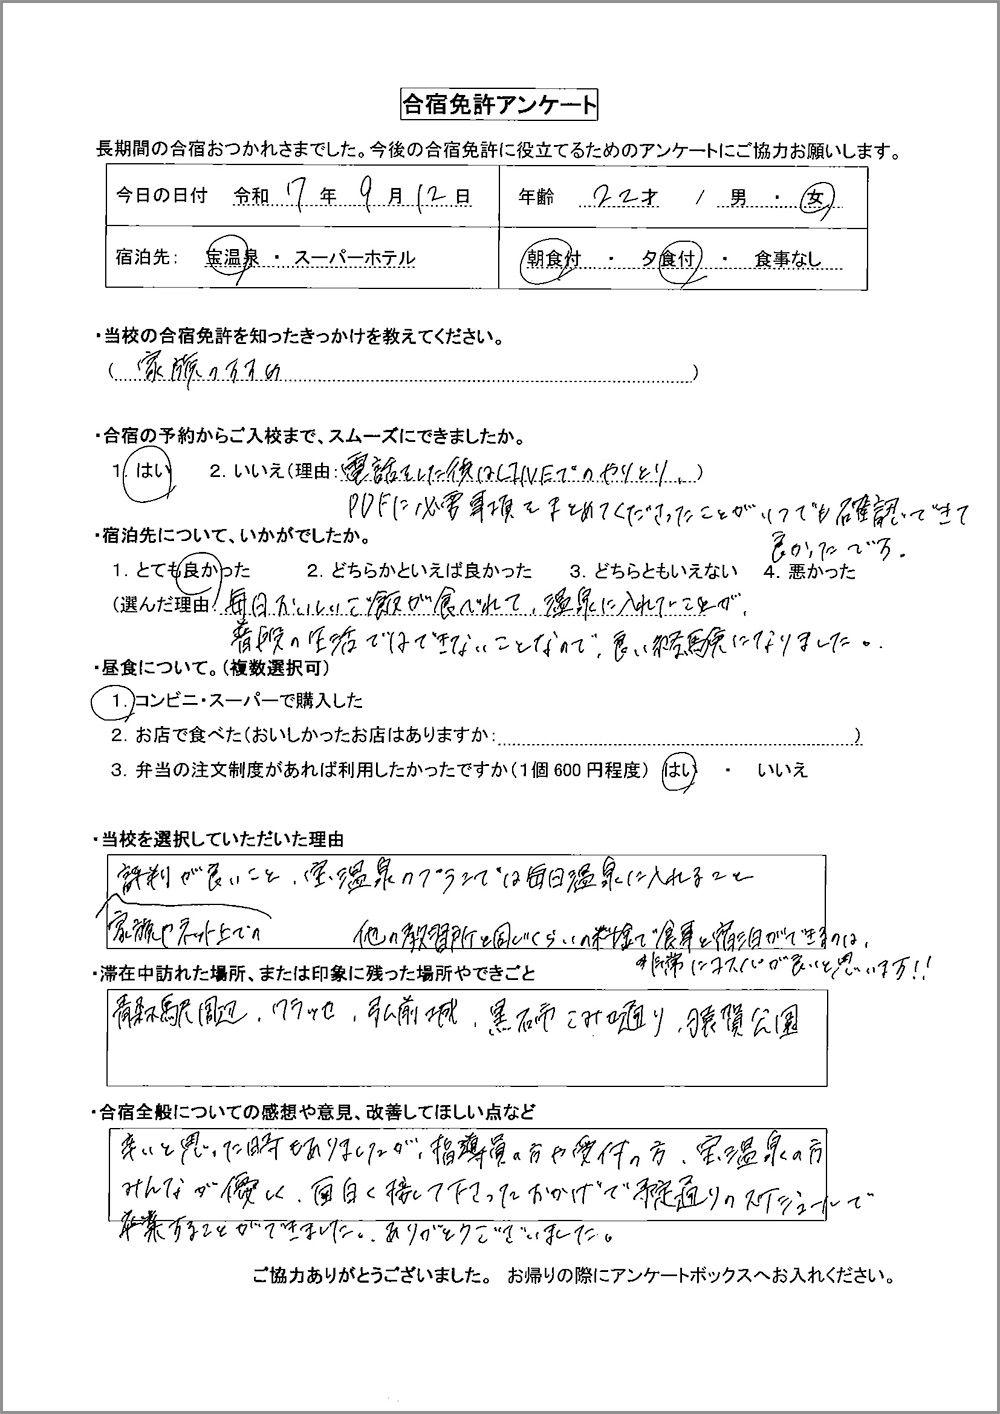 合宿免許アンケート
長期間の合宿おつかれさまでした。今後の合宿免許に役立てるためのアンケートにご協力お願いします。
今日の日付 令和 7 年 9 月 12 日 年齢 22才 / 男 ・ 女
宿泊先: 宝温泉 ・ スーパーホテル 朝食付 ・ 夕食付 ・ 食事なし
・当校の合宿免許を知ったきっかけを教えてください。
( 家族のすすめ )
・合宿の予約からご入校まで、スムーズにできましたか。
1. はい 2. いいえ(理由: 電話をした後はLINEでのやりとり、)
PDFに必要事項をまとめてくださったことがいつでも確認できて
良かったです。
・宿泊先について、いかがでしたか。
1. とても良かった 2. どちらかといえば良かった 3. どちらともいえない 4. 悪かった
(選んだ理由: 毎日おいしいご飯が食べれて、温泉に入れたことが、
普段の生活ではできないことなので、良い経験になりました。
・昼食について。(複数選択可)
1. コンビニ・スーパーで購入した
2. お店で食べた(おいしかったお店はありますか: )
3. 弁当の注文制度があれば利用したかったですか(1個600円程度) はい ・ いいえ
・当校を選択していただいた理由
評判が良いこと、宝温泉のプランでは毎日温泉に入れること
家族やネット上での 他の教習所と同じくらいの料金で食事と宿泊ができるのは、
非常にコスパが良いと思います!!
・滞在中訪れた場所、または印象に残った場所やできごと
青森駅周辺、ワラッセ、弘前城、黒石市こみせ通り、猿賀公園
・合宿全般についての感想や意見、改善してほしい点など
辛いと思った時もありましたが、指導員の方や受付の方、宝温泉の方
みんなが優しく、面白く接して下さったおかげで予定通りのスケジュールで
卒業することができました。ありがとうございました。
ご協力ありがとうございました。 お帰りの際にアンケートボックスへお入れください。